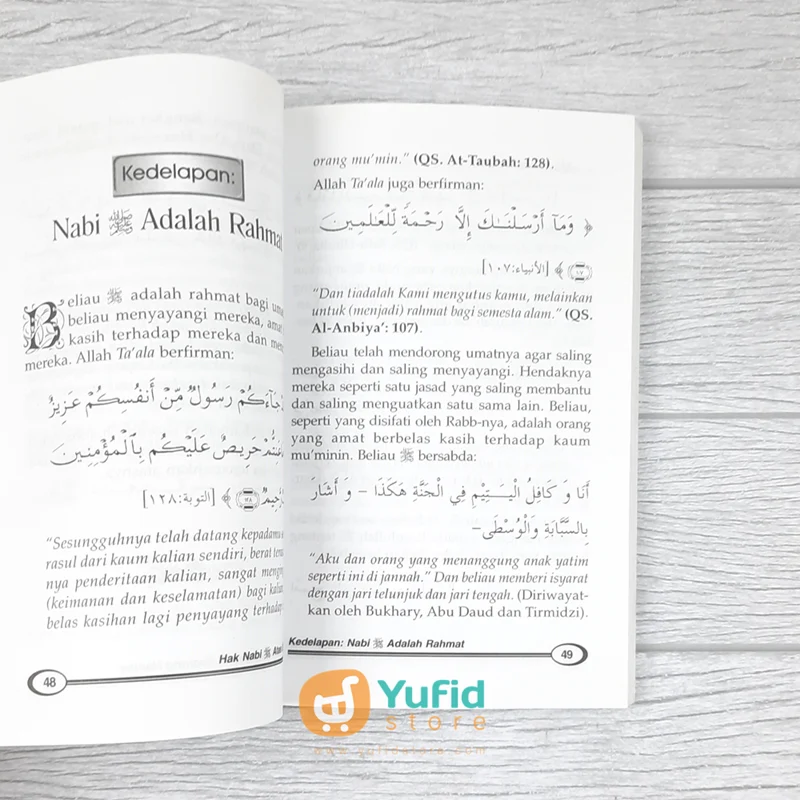 Kedelapan:
Nabi ﷺ Adalah Rahmat
Beliau ﷺ adalah rahmat bagi
beliau menyayangi mereka,
kasih terhadap mereka dan
mereka. Allah Ta'ala berfirman:
رَسُولٌ مِّنْ أَنفُسِكُمْ عَزِيزٌ
حَرِيصٌ عَلَيْكُم بِالْمُؤْمِنِينَ
﴿١٢٨﴾ [التوبة:١٢٨]
"Sesungguhnya telah datang kepadamu
rasul dari kaum kalian sendiri, berat
nya penderitaan kalian, sangat
(keimanan dan keselamatan) bagi
belas kasihan lagi penyayang terhadap
Hak Nabi ﷺ
48
orang mu'min." (QS. At-Taubah: 128).
Allah Ta'ala juga berfirman:
﴿ وَمَآ أَرْسَلْنَـٰكَ إِلَّا رَحْمَةً لِّلْعَـٰلَمِينَ
﴿١٠٧﴾ [الأنبياء:١٠٧]
"Dan tiadalah Kami mengutus kamu, melainkan
untuk (menjadi) rahmat bagi semesta alam." (QS.
Al-Anbiya': 107).
Beliau telah mendorong umatnya agar saling
mengasihi dan saling menyayangi. Hendaknya
mereka seperti satu jasad yang saling membantu
dan saling menguatkan satu sama lain. Beliau,
seperti yang disifati oleh Rabb-nya, adalah orang
yang amat berbelas kasih terhadap kaum
mu'minin. Beliau ﷺ bersabda:
أَنَا وَ كَافِلُ الْيَتِيْمِ فِي الْجَنَّةِ هَكَذَا – وَ أَشَارَ
بِالسَّبَّابَةِ وَالْوُسْطَى–
"Aku dan orang yang menanggung anak yatim
seperti ini di jannah." Dan beliau memberi isyarat
dengan jari telunjuk dan jari tengah. (Diriwayat-
kan oleh Bukhary, Abu Daud dan Tirmidzi).
Kedelapan: Nabi ﷺ Adalah Rahmat
49
Yufid
store
www.yufidstore.com